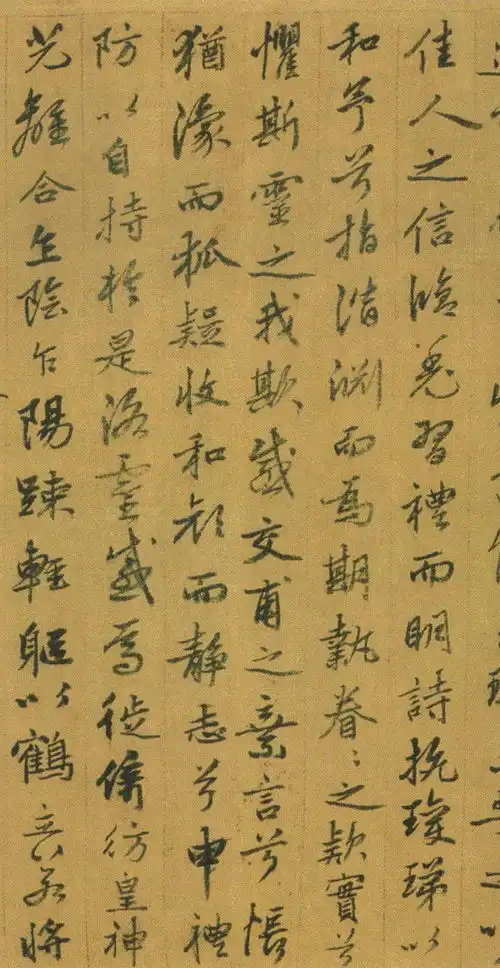 佳人之信脩羌習禮而明詩抗瓊珶以
和予兮指潛淵而為期執眷〻之款實兮
懼斯靈之我欺感交甫之棄言兮悵
猶濠而狐疑收和顏而靜志兮申禮
防以自持於是洛靈感焉徙倚彷皇神
光離合乍陰乍陽踈輕軀以鶴立若將